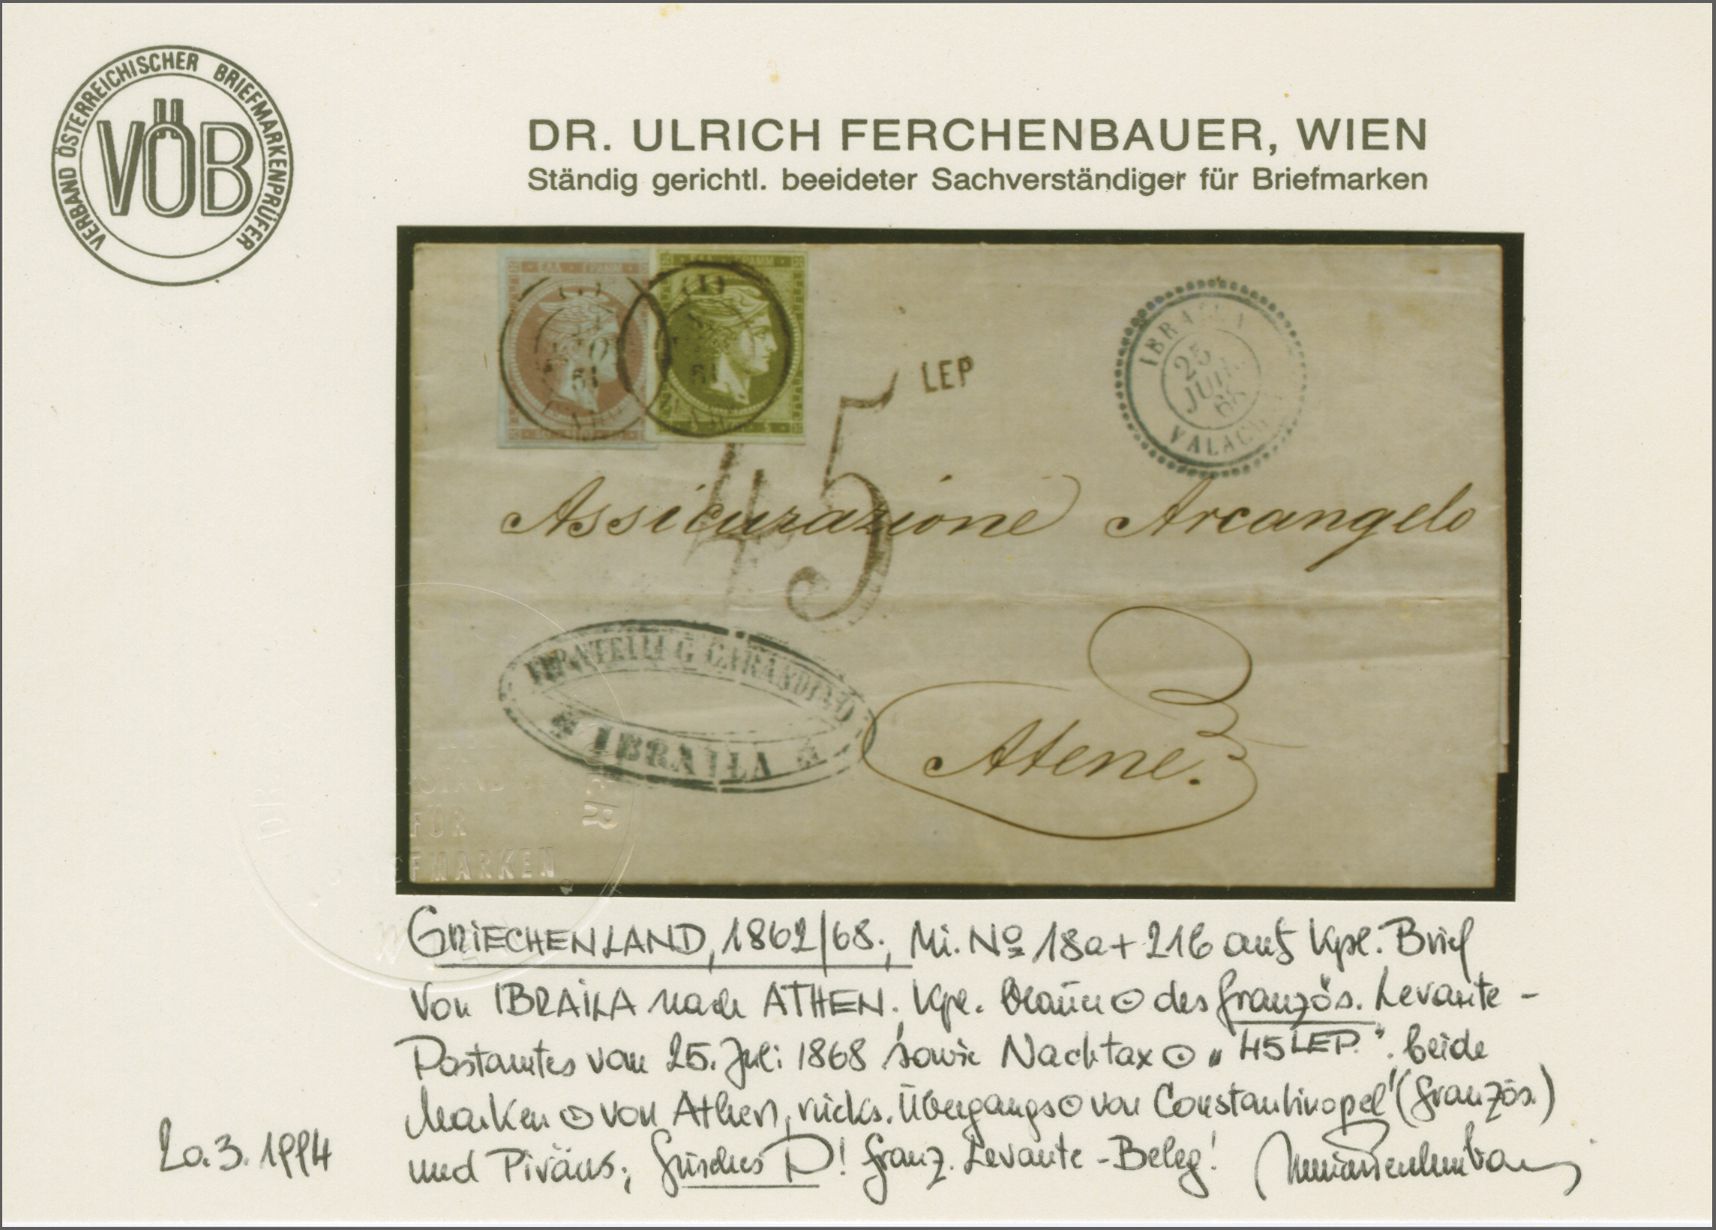 VERBAND ÖSTERREICHISCHER BRIEFMARKENPRÜFER
VÖB
DR. ULRICH FERCHENBAUER, WIEN
Ständig gerichtl. beeideter Sachverständiger für Briefmarken
ΕΛΛ ΓΡΑΜΜ
ΕΛΛ ΓΡΑΜΜ
(1)
(1)
45
LEP
IBRAILA
25
JUIL
68
VALAC
Assicurazione Arcangelo
FRATELLI G.
IBRAILA
Atene.
FÜR
GRIECHENLAND, 1862/68., Mi. No 18a + 21b auf kpl. Brief
von IBRAILA nach ATHEN. kpl. blauen ⊙ des französ. Levante-
Postamtes vom 25. Juli 1868 sowie Nachtax ⊙ "45 LEP.". beide
Marken ⊙ von Athen, rücks. Übergangs ⊙ von Constantinopel (französ.)
und Piräus; frisches P! franz. Levante-Beleg!
20.3.1994